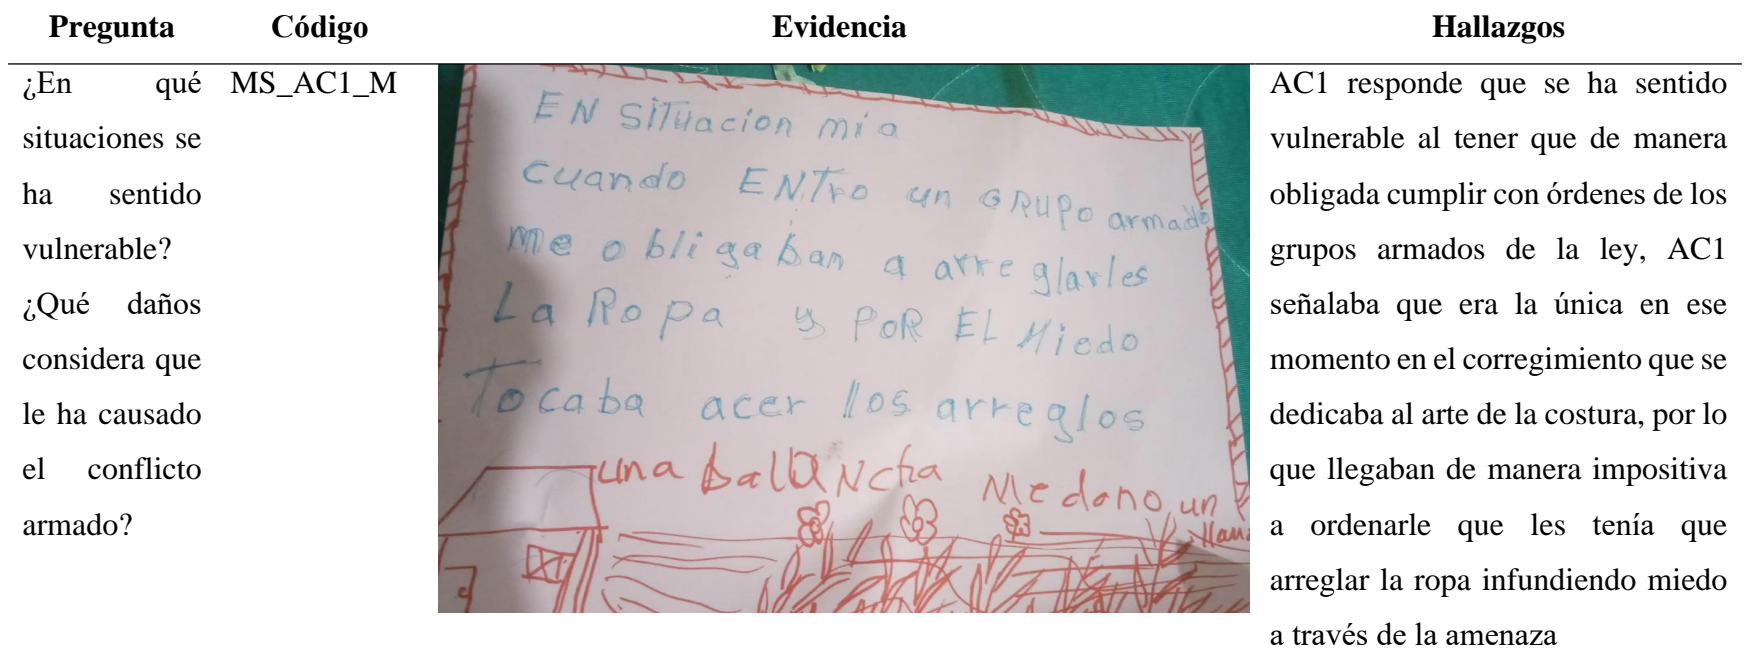 Pregunta Código Evidencia Hallazgos
¿En qué
situaciones se
ha sentido
vulnerable?
¿Qué daños
considera que
le ha causado
el conflicto
armado?
MS_AC1_M
EN SiTuacion mia
cuando ENTro un GRUPo armado
me obligaban a arreglarles
La Ropa y POR EL Miedo
Tocaba acer los arreglos
una ballaNcha Me daño un
AC1 responde que se ha sentido
vulnerable al tener que de manera
obligada cumplir con órdenes de los
grupos armados de la ley, AC1
señalaba que era la única en ese
momento en el corregimiento que se
dedicaba al arte de la costura, por lo
que llegaban de manera impositiva
a ordenarle que les tenía que
arreglar la ropa infundiendo miedo
a través de la amenaza